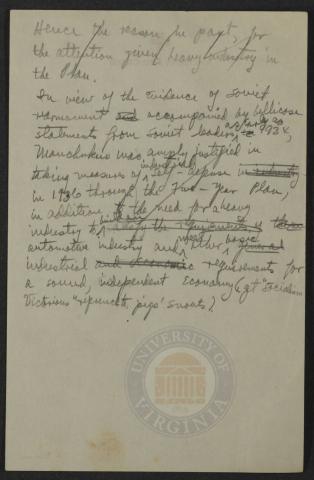 Hence the reason in part, for
the attention given heavy industry in
the Plan.
In view of the evidence of Soviet
rearmament and accompanied by bellicose
statements from Soviet leaders, as early as 1934,
Manchukuo was amply justified in
taking measures of industrial self-defense in
in 1936 through the Five-Year Plan,
in addition to the need for a heavy
industry to satisfy the requirements of
automotive industry and other basic general
industrial and economic requirements for
a sound, independent economy (get "Socialism
Victorious" reference, pigs' snouts).
UNIVERSITY OF
VIRGINIA